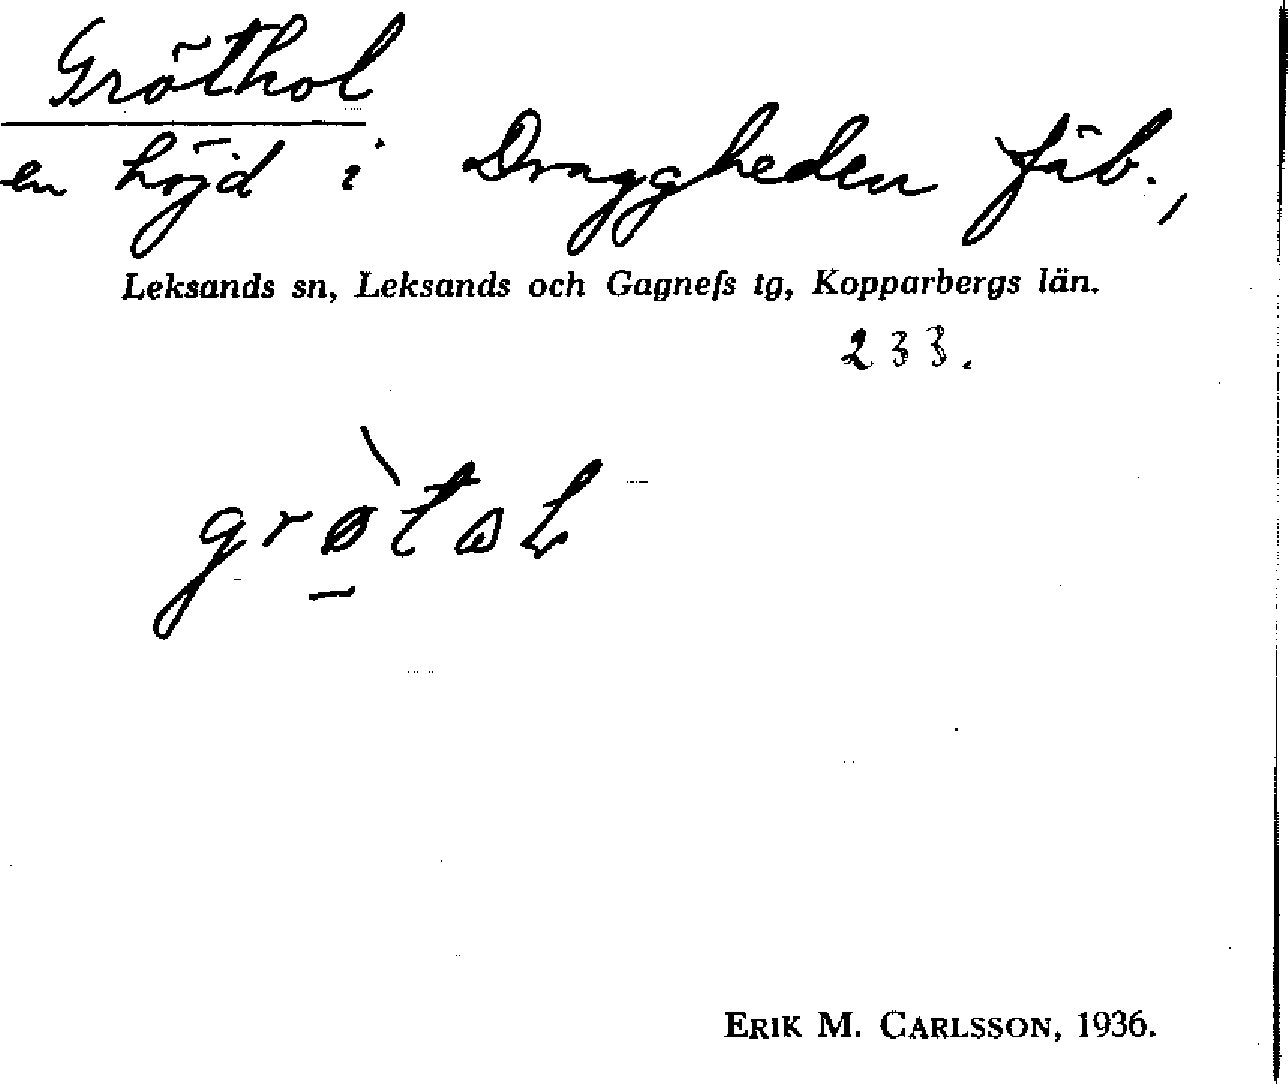 Gröthol
en höjd i Draggheden fäb.,
Leksands sn, Leksands och Gagnefs tg, Kopparbergs län.
233.
ERIK M. CARLSSON, 1936.